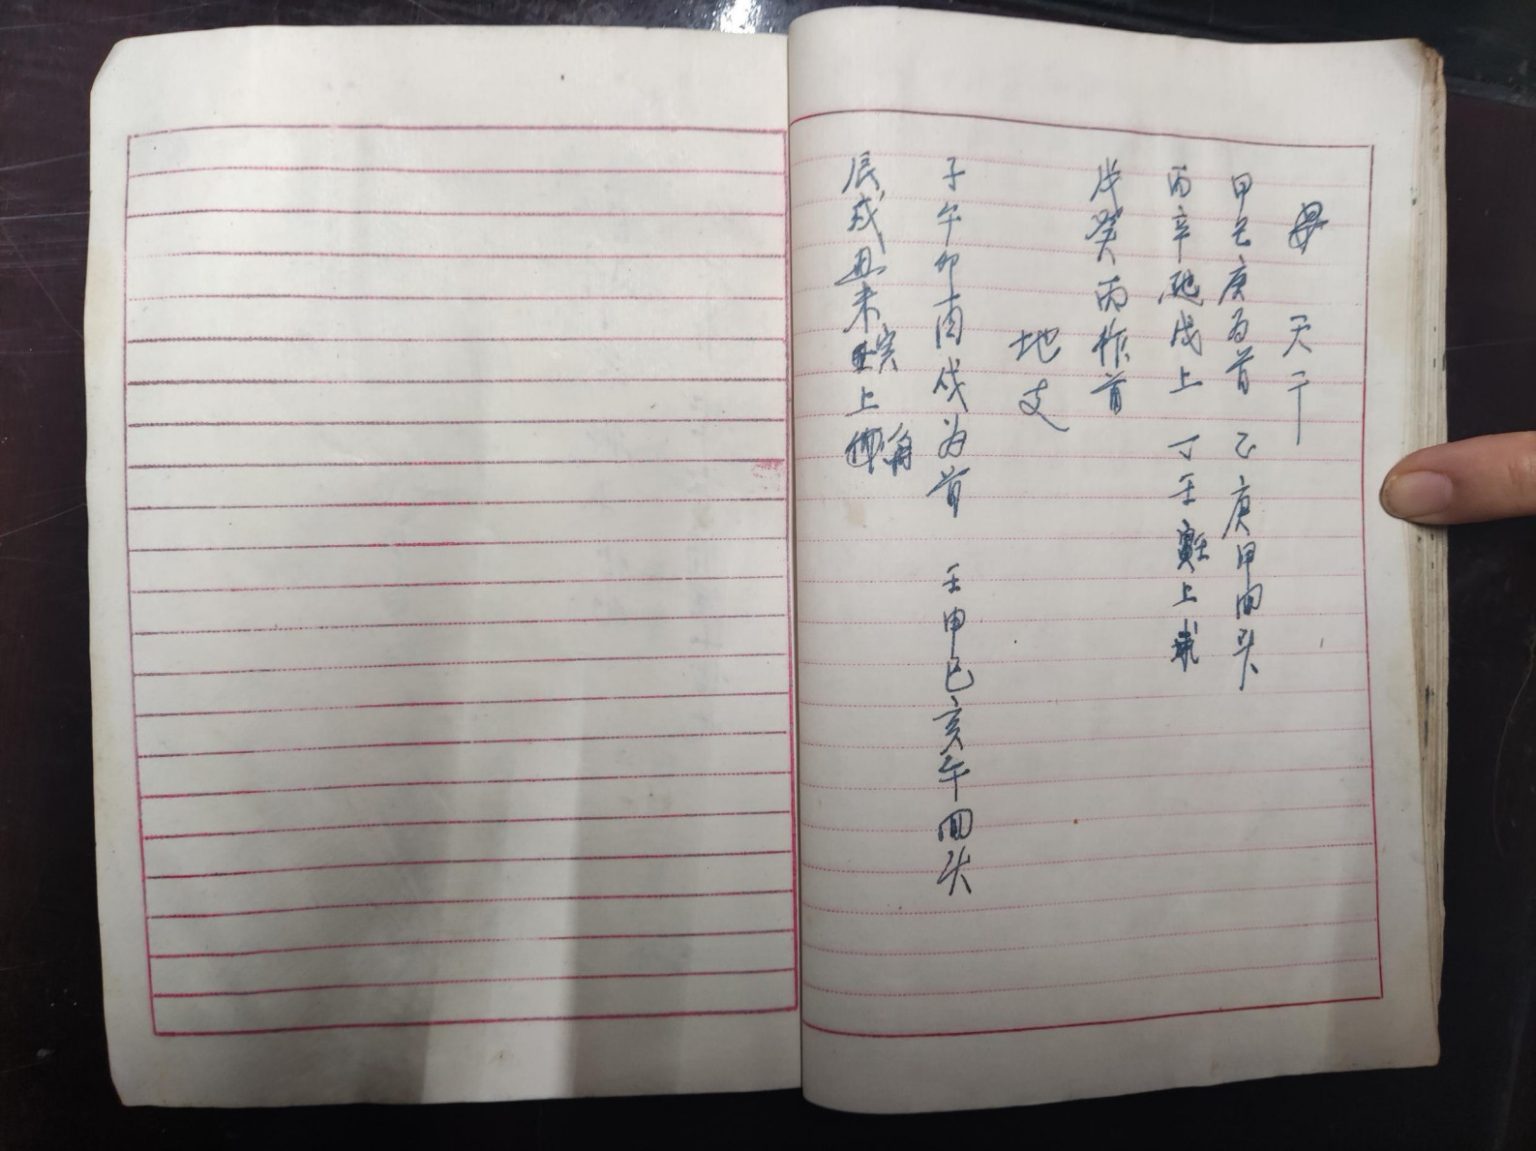 天干
甲己庚为首 乙庚甲回头
丙辛起戊上 丁壬上
戊癸丙作首
地支
子午卯酉戌为首 壬申巳亥午回头
辰戌丑未寅上